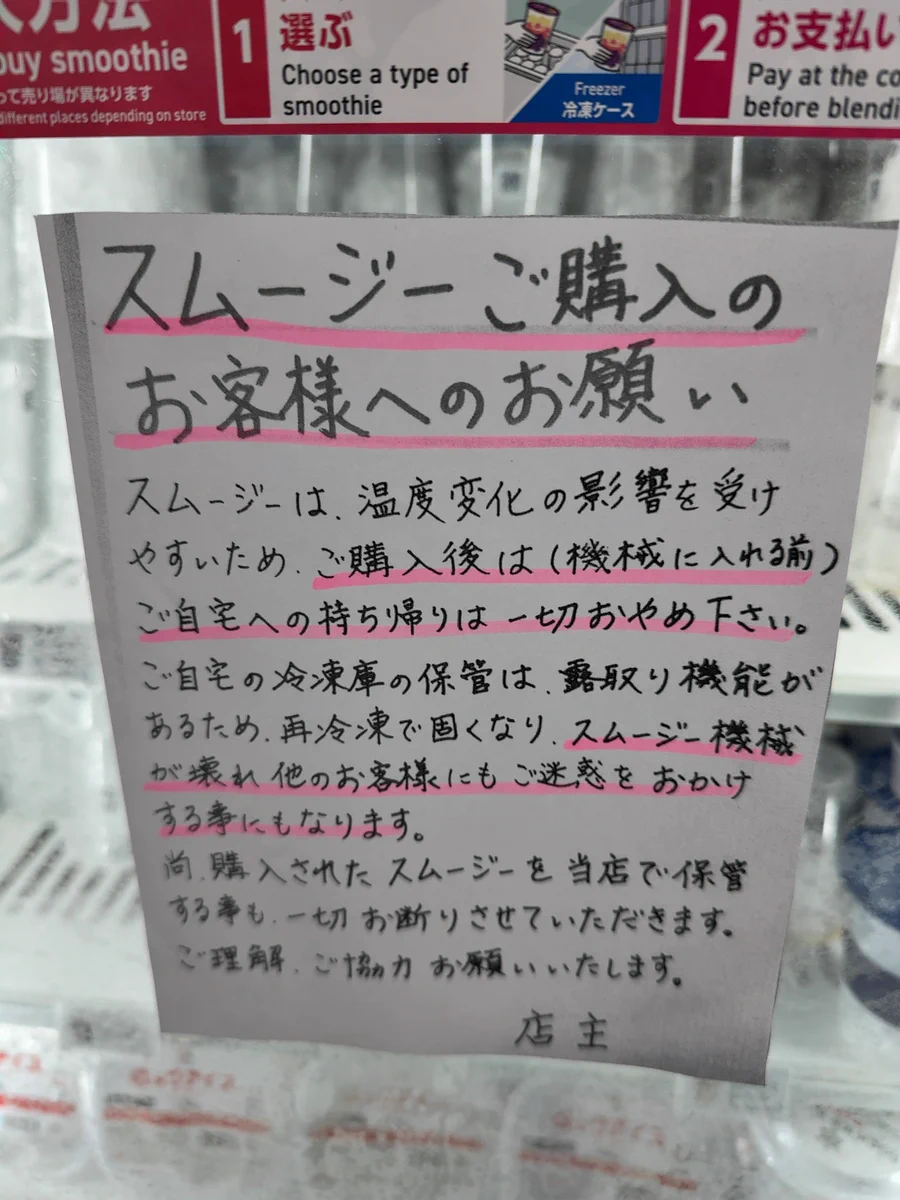 方法
buy smoothie
って売り場が異なります
different places depending on store
1
選ぶ
Choose a type of
smoothie
Freezer
冷凍ケース
2
お支払い
Pay at the
before
スムージーご購入の
お客様へのお願い
スムージーは、温度変化の影響を受け
やすいため、ご購入後は(機械に入れる前)
ご自宅への持ち帰りは一切おやめ下さい。
ご自宅の冷凍庫の保管は、霜取り機能が
あるため、再冷凍で固くなり、スムージー機械
が壊れ他のお客様にもご迷惑をおかけ
する事にもなります。
尚、購入されたスムージーを当店で保管
する事も、一切お断りさせていただきます。
ご理解、ご協力お願いいたします。
店主
ロックアイス